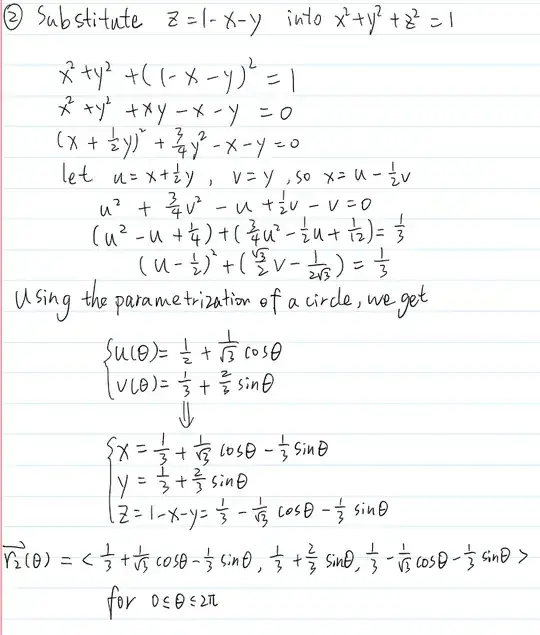 ② Substitute z=1-x-y into x²+y²+z²=1
x²+y²+(1-x-y)²=1
x²+y²+xy-x-y=0
(x+½y)²+¾y²-x-y=0
let u=x+½y, v=y, so x=u-½v
u²+¾v²-u+½v-v=0
(u²-u+¼)+(¾u²-½u+1/12)=⅓
(u-½)²+(√3/2 v-1/(2√3))=⅓
Using the parametrization of a circle, we get
{u(θ)=½+1/√3 cosθ
v(θ)=⅓+⅔ sinθ
⇓
{x=⅓+1/√3 cosθ-⅓ sinθ
y=⅓+⅔ sinθ
z=1-x-y=⅓-1/√3 cosθ-⅓ sinθ
r₂⃗(θ)=<⅓+1/√3 cosθ-⅓ sinθ, ⅓+⅔ sinθ, ⅓-1/√3 cosθ-⅓ sinθ>
for 0≤θ≤2π